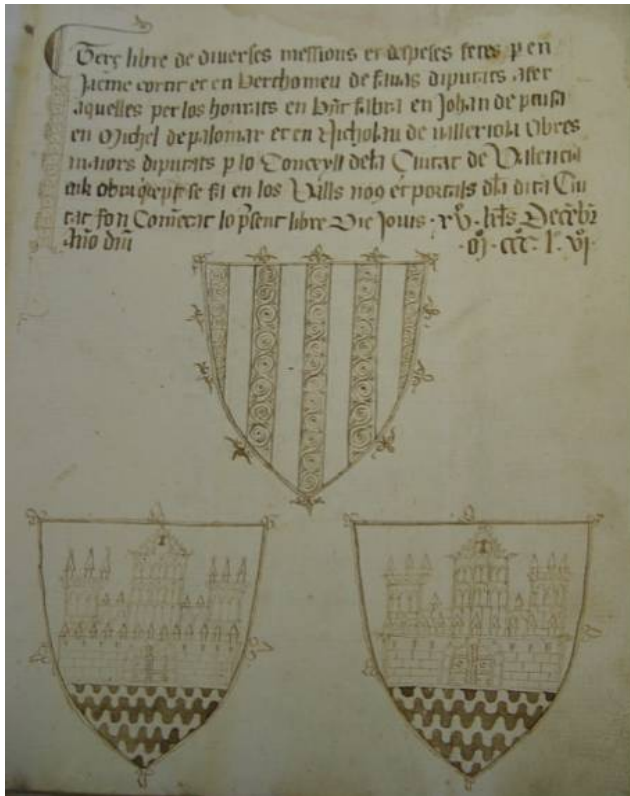 Terç libre de diverses messions et despeses fetes p en
Jacme et en Berthomeu de diputats afer
aquelles per los honrats en fabra en Johan de
en Michel de palomar et en Nicholau de valleriola Obres
maiors diputats p lo Conceyll dela Ciutat de Valencia
obra se fa en los Valls nous et portals dla dita Ciu
tat fon Comēcat lo psent libre Die Jouis · xv · kls Decēbr
Año dni · M · ccc · l · vi ·